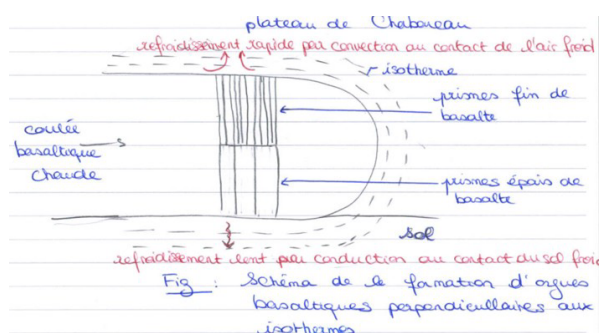 plateau de Chabareau
refroidissement rapide par convection au contact de l'air froid
isotherme
prismes fin de
basalte
coulée
basaltique
chaude
prismes épais de
basalte
sol
refroidissement lent par conduction au contact du sol froid
Fig : Schéma de la formation d'orgues
basaltiques perpendiculaires aux
isothermes